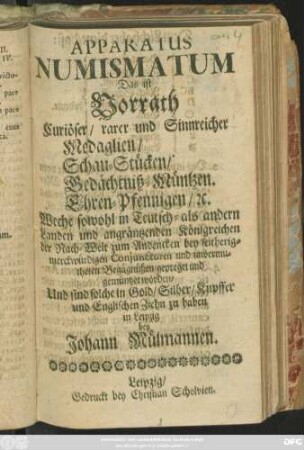 APPARATUS
NUMISMATUM
Das ist
Vorrath
Curiöser/ rarer und Sinnreicher
Medaglien/
Schau-Stücken/
Gedächtniß-Müntzen.
Ehren-Pfennigen/ ꝛc.
Weche sowohl in Teutsch- als andern
Landen und angräntzenden Königreichen
der Nach-Welt zum Andencken bey seitherig-
merckwürdigen Conjuncturen und
Begägnüssen gepreget und
gemüntzet worden/
Und sind solche in Gold/ Silber/ Kupffer
und Englischen Ziehn zu haben
in Leipzig
bey
Johann Mülmannen.
Leipzig/
Gedruckt bey Christian Scholvien.